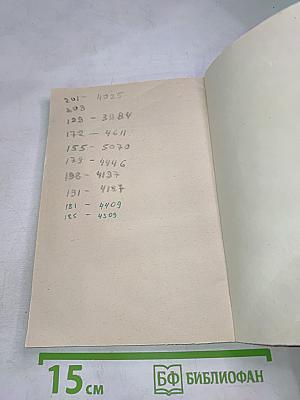 201- 4025
203
199 - 3984
172 — 4611
155 - 5070
179 - 4446
198 - 4197
191 - 4187
181 - 4409
185 - 4309
15 см
БФ БИБЛИОФАН